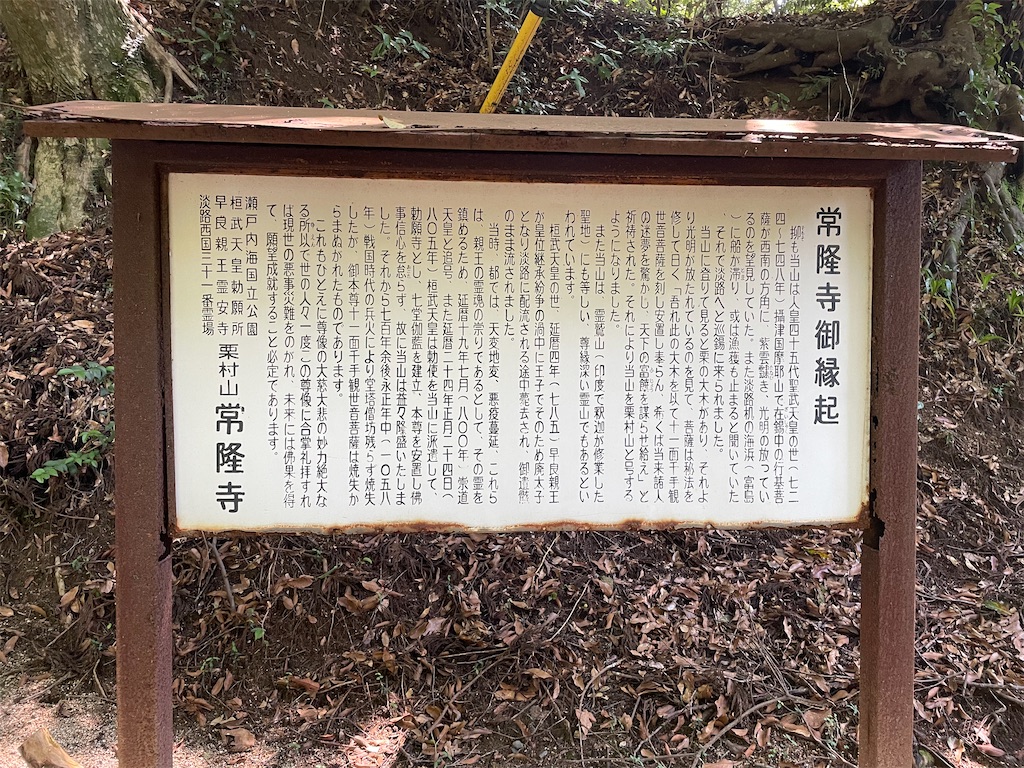 常隆寺御縁起
抑も当山は人皇四十五代聖武天皇の世(七二
四〜七四八年)攝津国摩耶山で在錫中の行基菩
薩が西南の方角に、紫雲靆き、光明の放つてい
るのを望見していた。また淡路机の海浜(富島
)に船が滞り、或は漁獲も止まると聞いていた
、それで淡路へと巡錫に来られました。
当山に登りて見ると栗の大木があり、それよ
り光明が放たれているのを見て、菩薩は秘法を
修して曰く「吾れ此の大木を以て十一面千手観
世音菩薩を刻し安置し奉らん、希くは当来諸人
の迷夢を驚かし、天下の富饒を謀らせ給え」と
祈祷された。それにより当山を栗村山と号する
ようになりました。
また当山は、霊鷲山(印度で釈迦が修業した
聖地)にも等しい、尊縁深い霊山でもあるとい
われています。
桓武天皇の世、延暦四年(七八五)早良親王
が皇位継承紛争の渦中に王子でそのため廃太子
となり淡路に配流される途中薨去され、御遺骸
のまま流されました。
当時、都では、天地変変、悪疫蔓延、これら
は、親王の霊魂の祟りであるとして、その霊を
鎮めるため、延暦十九年七月(八〇〇年)崇道
天皇と追号、また延暦二十四年正月二十四日(
八〇五年)桓武天皇は勅使を当山に派遣して、
勅願寺とし、七堂伽藍を建立、本尊を安置し佛
事信心を怠らず、故に当山は益々隆盛いたしま
した。それから七百年余後永正年中(一〇五八
年)戦国時代の兵火により堂塔僧坊残らず焼失
したが、御本尊十一面千手観世音菩薩は焼失か
らまぬがれたものであります。
これもひとえに尊像の大慈大悲の妙力絶大な
る所以で世の人々一度この尊像に合掌礼拝すれ
ば現世の悪事災難をのがれ、未来には佛果を得
て、願望成就すること必定であります。
瀬戸内海国立公園
桓武天皇勅願所
早良親王霊安寺
淡路西国二十一番霊場
栗村山常隆寺